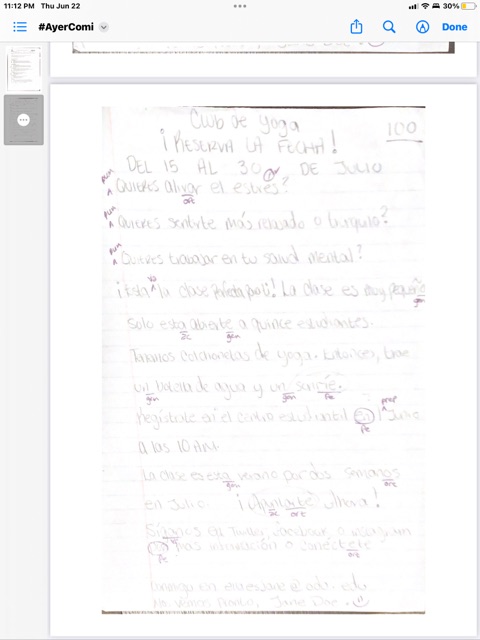 11:12 PM Thu Jun 22
30%
#AyerComi
Done
Club de Yoga
100
¡RESERVA LA FECHA!
DEL 15 AL 30 DE JULIO
pun
QUIERES alivar el estres?
ort
pun
QUIERES sentirte más relajado o tranquilo?
pun
QUIERES trabajar en tu salud mental?
¡Esta la clase para ti! La clase es muy pequeño
gen
solo esta abierte a quince estudiantes.
ac gen
Tenemos colchonetas de yoga. Entonces, trae
un botella de agua y un
gen gen fe
prep
Regístrate en el centro estudiantil En 1 Julio
fe
a las 10 AM.
La clase es esta verano por dos semanas
gen ort
en Julio. ¡Apuntarte ahora!
ac ort
Síganos en Twitter, Facebook, o Instagram
más información o conéctete
fe ort
conmigo en
Nos vemos pronto, Jane Doe.